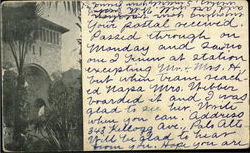 Your postal received.
Passed through on
Monday and saw no
one I knew at station
excepting Mr. & Mrs. H.
but when train reach-
ed Napa Mrs. Webber
boarded it and I was
glad to see her. Write
when you can. Address
343 Kellogg Ave., Palo Alto
Will be glad to hear
from you. Hope you are